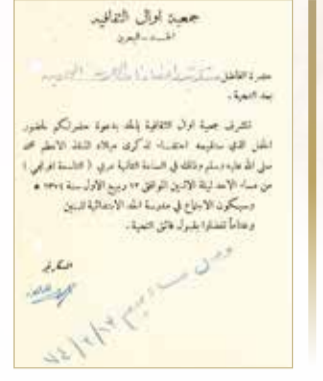 جمعية اوال الثقافية
الحد - البحرين
حضرة الفاضل
بعد التحية ،
تتشرف جمعية اوال الثقافية بالحد بدعوة حضرتكم لحضور
الحفل الذي ستقيمه احتفاء بذكرى ميلاد المنقذ الاعظم محمد
صلى الله عليه وسلم وذلك في الساعة الثانية عربي ( الثامنة افرنجي )
من مساء الاحد ليلة الاثنين الموافق ١٢ ربيع الاول سنة ١٣٧٤ هـ
وسيكون الاجتماع في مدرسة الحد الابتدائية للبنين
وختاماً تفضلوا بقبول فائق التحية .
السكرتير
وصل مساء يوم
٧٤/٣/١٢